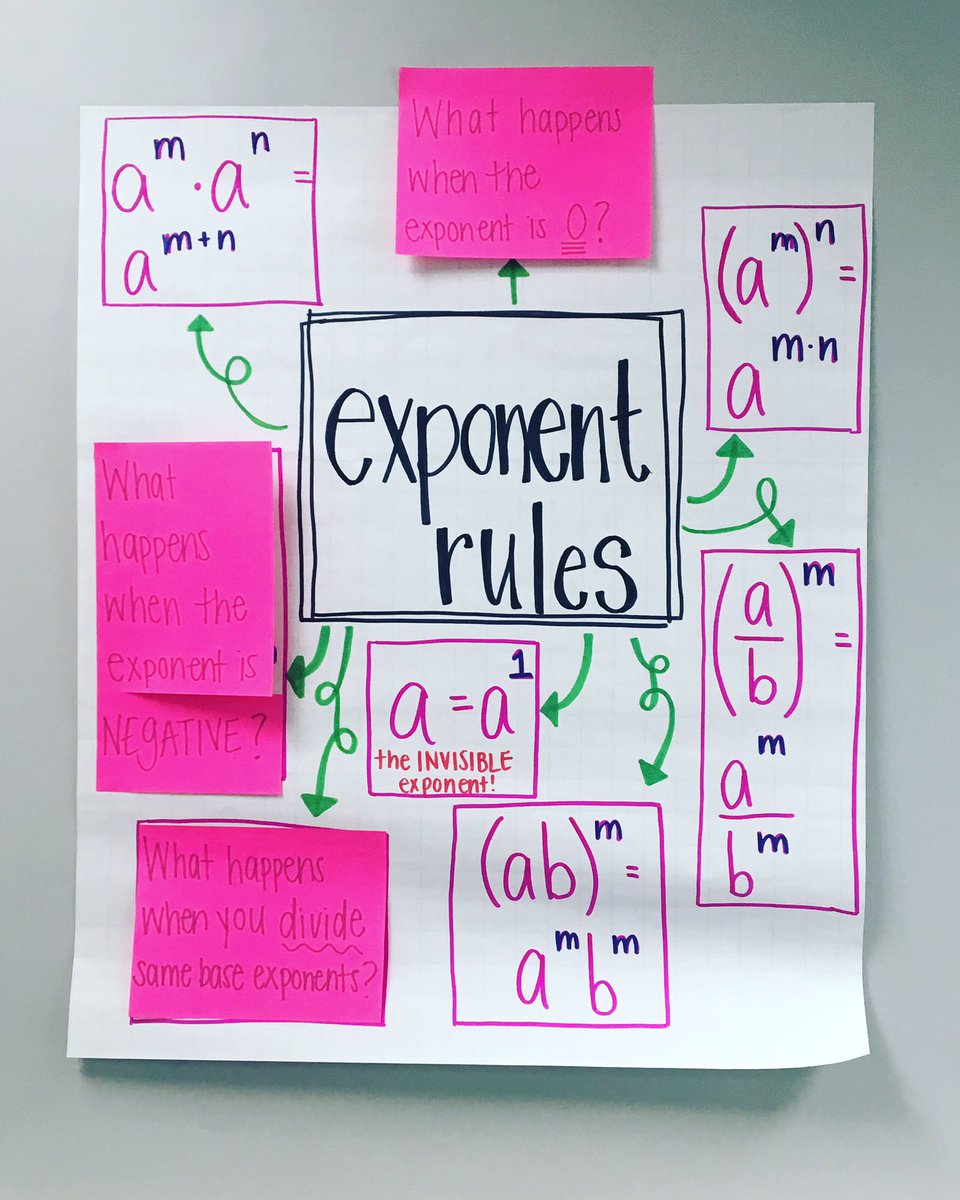 What happens
when the
exponent is 0?
aᵐ · aⁿ =
aᵐ⁺ⁿ
(aᵐ)ⁿ =
aᵐ·ⁿ
exponent
rules
What
happens
when the
exponent is
NEGATIVE?
a = a¹
the INVISIBLE
exponent!
(a/b)ᵐ =
aᵐ/bᵐ
What happens
when you divide
same base exponents?
(ab)ᵐ =
aᵐbᵐ